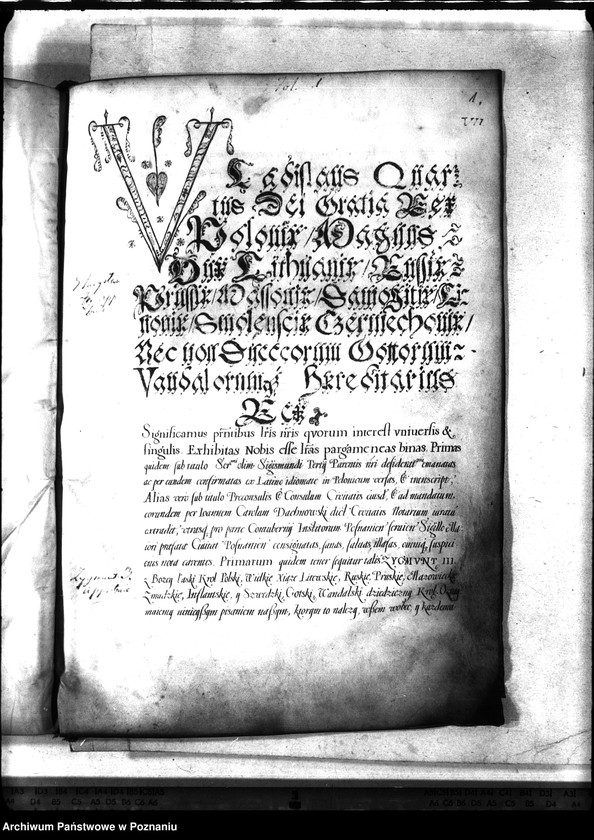 1.
VLadislaus Quar
tus Dei Gratia Rex
Poloniæ / Magnus
Dux Lithuaniæ / Russiæ
Prussiæ / Massoniæ / Samogitiæ / Li
noniæ / Smolensciæ Czerniechoniæ /
Nec non Sueccorum Gottorum
Vandalorumq Hereditarius
Rex
Significamus pñtibus lris nris quorum interest vniuersis &
singulis. Exhibitas Nobis esse lras pargameneas binas. Primas
quidem sub titulo Ser olim Sigismundi Tertij Parentis nri desiderat emanatas
ac per eundem confirmatas ex Latino idiomate in Polonicum versas, & transcript
Alias vero sub titulo Proconsulis & Consulum Ciuitatis eiusd, & ad mandatum
eorundem per Ioannem Carolum Dachnowski dict Ciuitatis Notarium
extradit, pro parte Contubernij Institorum Posnanien Sigillo
Ciuitat Posnanien consignatas, sanas, saluas, illæsas,
carentes. Primarum quidem tenor sequitur talis. ZYGMVNT III.
z Bozey łaski Krol Polski, Wielkie Xiąze Litewskie, Ruskie, Pruskie, Mazowieckie
Zmudzkie, Inflantskie, y Szwedzki, Gotski, Wandalski dziedziczny Krol. Ozna
ninieyszym pisaniem naszym, ktorym to nalezy, wszem wobec, y kazdemu
Archiwum Państwowe w Poznaniu